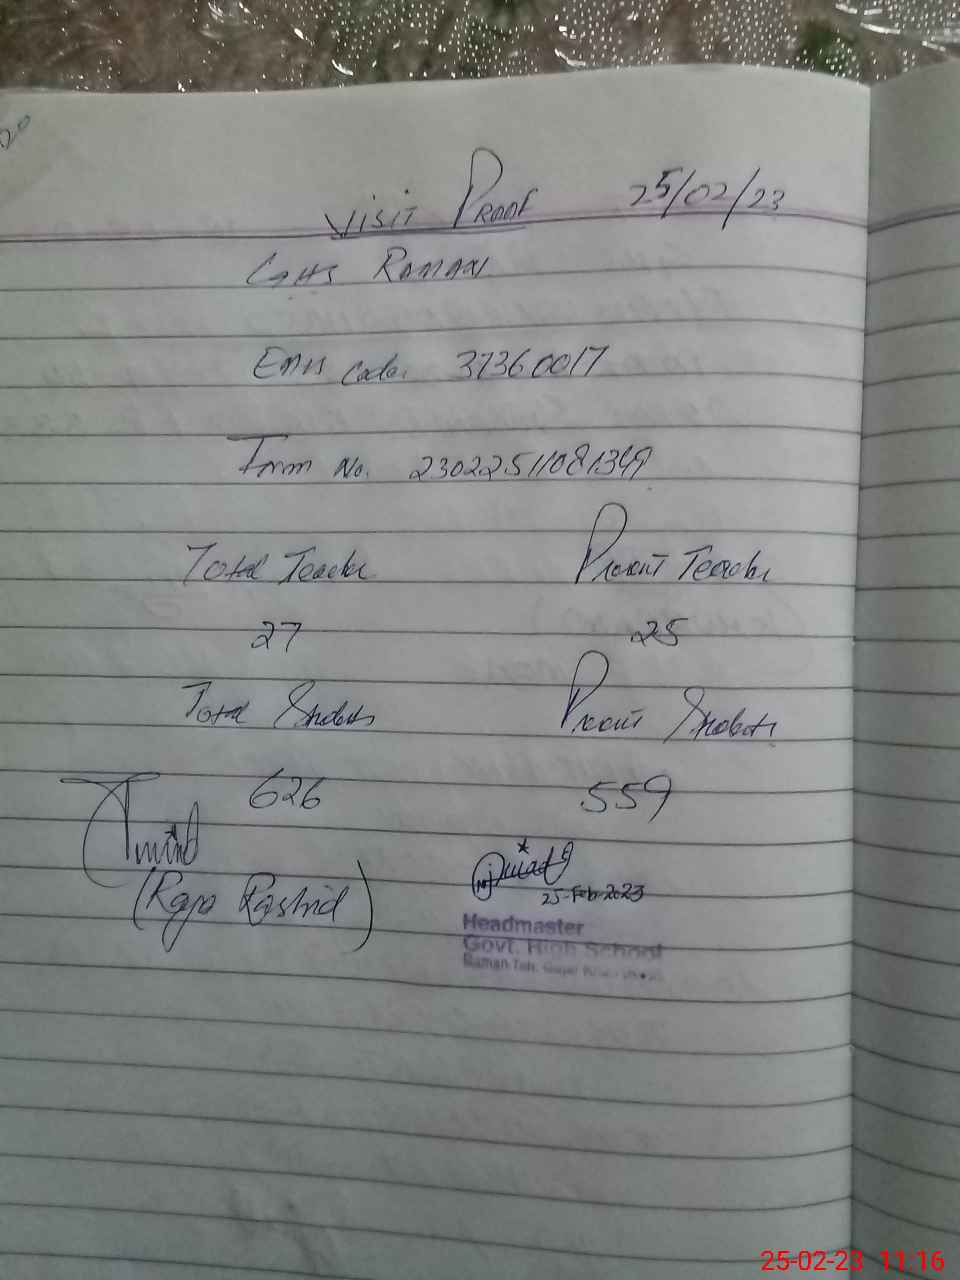 Visit Proof 25/02/23
GHS Raman
Emis Code. 37360017
Form No. 23022511081349
Total Teacher Present Teacher
27 25
Total Students Present Students
626 559
(Raja Rashid)
25-Feb-2023
Headmaster
Govt. High School
Raman Teh. Gujar Khan
25-02-23 11:16